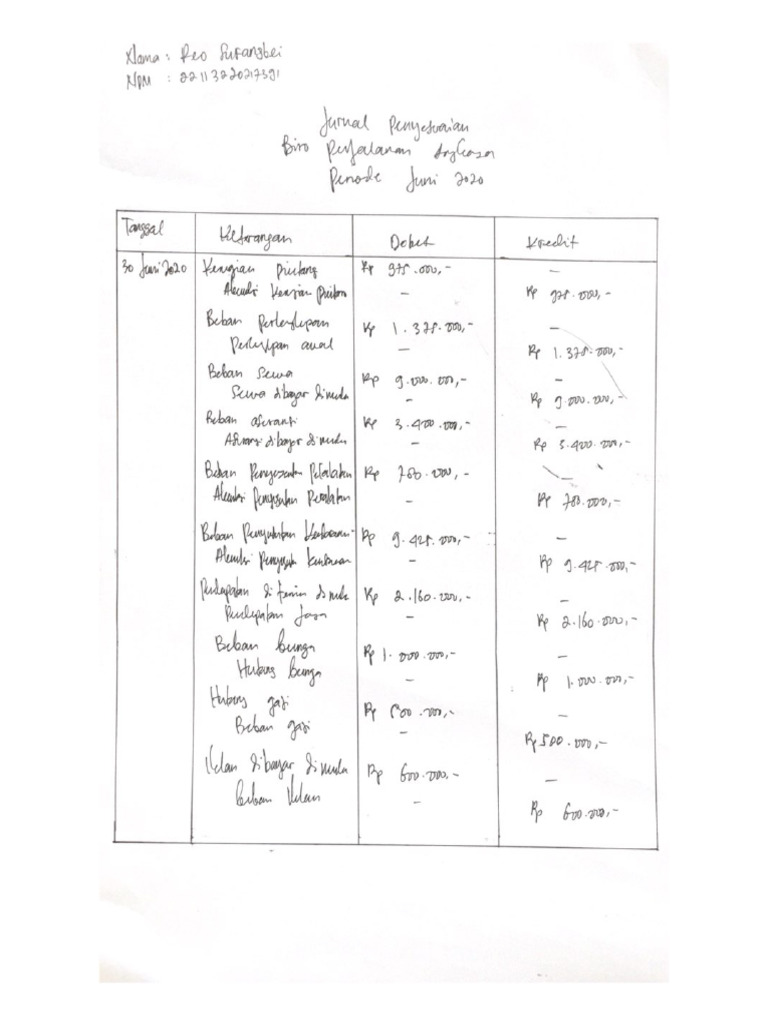 Nama : Reo Surangbei
NPM : 22113220217591
Jurnal Penyesuaian
Biro Perjalanan Angkasa
Periode Juni 2020
Tanggal Keterangan Debet Kredit
30 Juni 2020 Kerugian Piutang Rp 975.000,- –
Akumulasi Kerugian Piutang – Rp 975.000,-
Beban Perlengkapan Rp 1.375.000,- –
Perlengkapan awal – Rp 1.375.000,-
Beban Sewa Rp 9.000.000,- –
Sewa dibayar dimuka – Rp 9.000.000,-
Beban asuransi Rp 3.400.000,- –
Asuransi dibayar dimuka – Rp 3.400.000,-
Beban Penyusutan Peralatan Rp 780.000,- –
Akumulasi Penyusutan Peralatan – Rp 780.000,-
Beban Penyusutan Kendaraan Rp 9.425.000,- –
Akumulasi Penyusutan Kendaraan – Rp 9.425.000,-
Pendapatan diterima dimuka Rp 2.160.000,- –
Pendapatan Jasa – Rp 2.160.000,-
Beban bunga Rp 1.000.000,- –
Hutang bunga – Rp 1.000.000,-
Hutang gaji Rp 500.000,- –
Beban gaji – Rp 500.000,-
Iklan dibayar dimuka Rp 600.000,- –
Beban Iklan – Rp 600.000,-